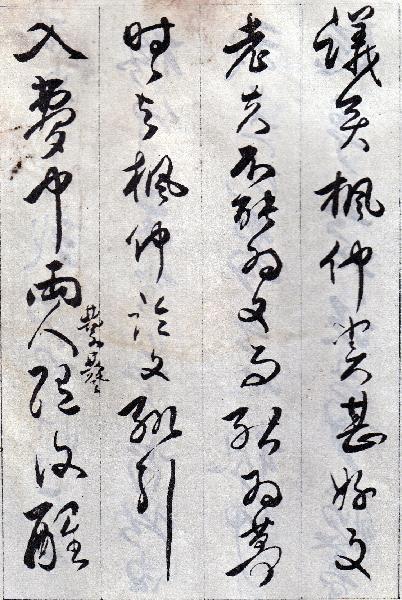 議矣楓仲實甚好文
老夫不能為文而能為夢
時〻與楓仲論文輒引
入夢中兩人醒